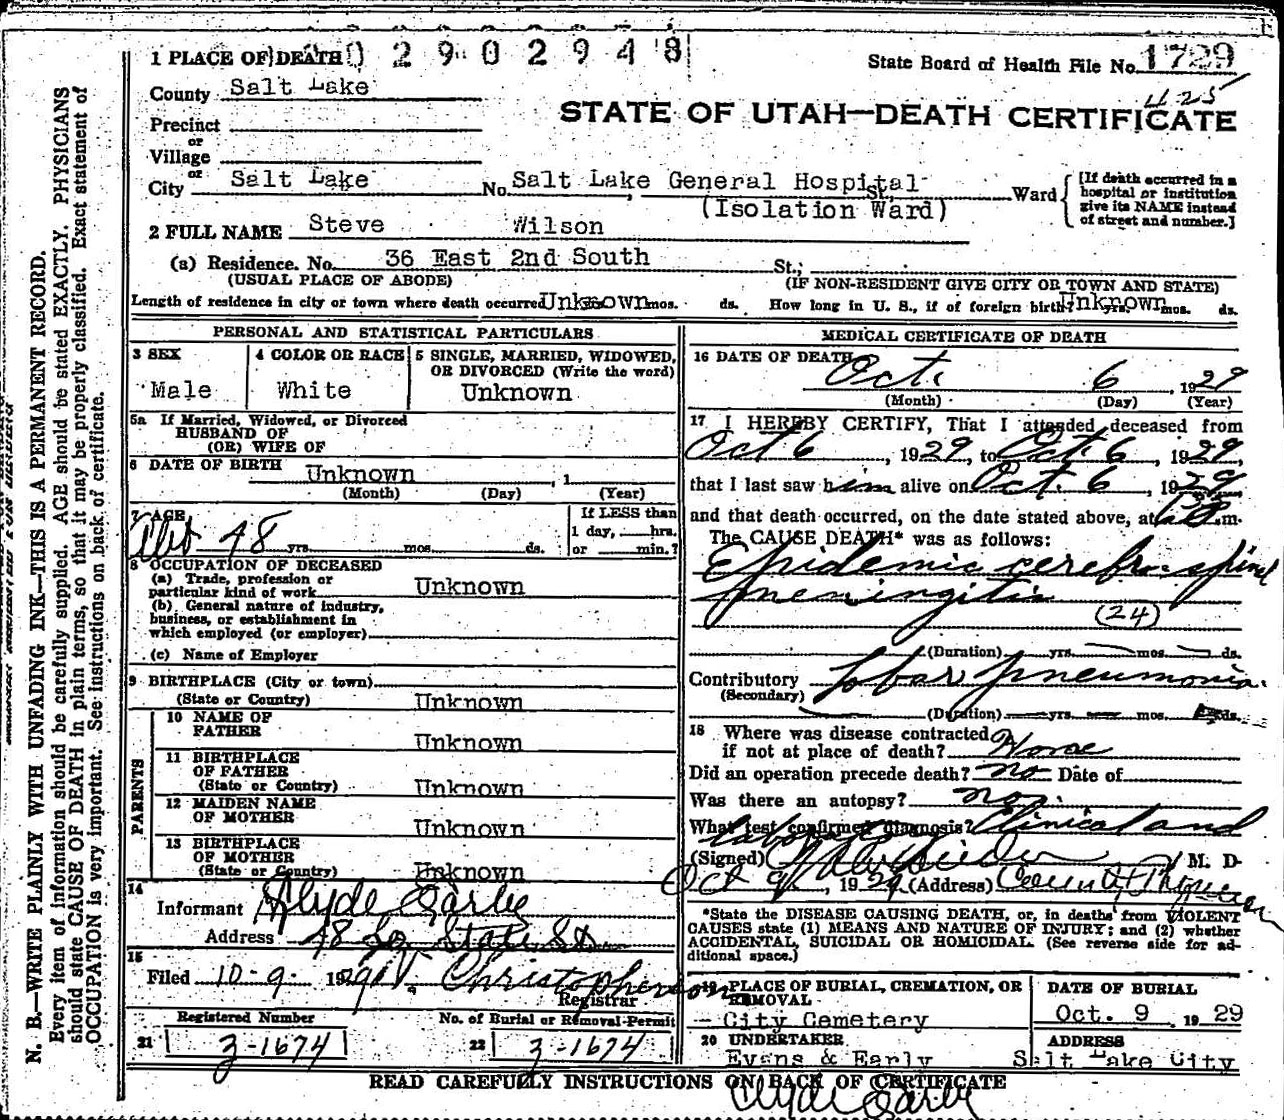 1 PLACE OF DEATH 0 2 9 0 2 9 4 8
State Board of Health File No. 1729
425
County Salt Lake
STATE OF UTAH—DEATH CERTIFICATE
Precinct
or
Village
or
City Salt Lake No. Salt Lake General Hospital St., Ward
(Isolation Ward)
[If death occurred in a hospital or institution give its NAME instead of street and number.]
2 FULL NAME Steve Wilson
(a) Residence. No. 36 East 2nd South St.,
(USUAL PLACE OF ABODE) (IF NON-RESIDENT GIVE CITY OR TOWN AND STATE)
Length of residence in city or town where death occurred Unknown mos. ds. How long in U. S., if of foreign birth? Unknown yrs. mos. ds.
PERSONAL AND STATISTICAL PARTICULARS
3 SEX
Male
4 COLOR OR RACE
White
5 SINGLE, MARRIED, WIDOWED, OR DIVORCED (Write the word)
Unknown
5a If Married, Widowed, or Divorced
HUSBAND OF
(OR) WIFE OF
6 DATE OF BIRTH Unknown , 1
(Month) (Day) (Year)
7 AGE
Abt 48 yrs. mos. ds.
If LESS than
1 day, hrs.
or min.?
8 OCCUPATION OF DECEASED
(a) Trade, profession or
particular kind of work Unknown
(b) General nature of industry,
business, or establishment in
which employed (or employer)
(c) Name of Employer
9 BIRTHPLACE (City or town)
(State or Country) Unknown
PARENTS
10 NAME OF
FATHER Unknown
11 BIRTHPLACE
OF FATHER
(State or Country) Unknown
12 MAIDEN NAME
OF MOTHER Unknown
13 BIRTHPLACE
OF MOTHER
(State or Country) Unknown
14
Informant Clyde Early
Address 48 So State St
15
Filed 10-9- 1929 Christopherson
Registrar
Registered Number No. of Burial or Removal Permit
21 3-1674 22 3-1674
MEDICAL CERTIFICATE OF DEATH
16 DATE OF DEATH
Oct. 6 , 1929
(Month) (Day) (Year)
17 I HEREBY CERTIFY, That I attended deceased from
Oct 6 , 1929, to Oct. 6 , 1929,
that I last saw him alive on Oct. 6 , 1929
and that death occurred, on the date stated above, at m.
The CAUSE DEATH* was as follows:
Epidemic cerebro-spinal
meningitis
(24)
(Duration) yrs. mos. ds.
Contributory Lobar pneumonia
(Secondary)
(Duration) yrs. mos. ds.
18 Where was disease contracted
if not at place of death? Home
Did an operation precede death? no Date of
Was there an autopsy? no.
What test confirmed diagnosis? Clinical and
laboratory
(Signed) M. D
Oct 9 , 1929 (Address) County Physician
*State the DISEASE CAUSING DEATH, or, in deaths from VIOLENT
CAUSES state (1) MEANS AND NATURE OF INJURY; and (2) whether
ACCIDENTAL, SUICIDAL OR HOMICIDAL. (See reverse side for ad-
ditional space.)
19 PLACE OF BURIAL, CREMATION, OR
REMOVAL
City Cemetery
DATE OF BURIAL
Oct. 9 , 19 29
20 UNDERTAKER
Evans & Early
ADDRESS
Salt Lake City
READ CAREFULLY INSTRUCTIONS ON BACK OF CERTIFICATE
Clyde Early
N. B.—WRITE PLAINLY WITH UNFADING INK—THIS IS A PERMANENT RECORD.
Every item of information should be carefully supplied. AGE should be stated EXACTLY. PHYSICIANS
should state CAUSE OF DEATH in plain terms, so that it may be properly classified. Exact statement of
OCCUPATION is very important. See instructions on back of certificate.